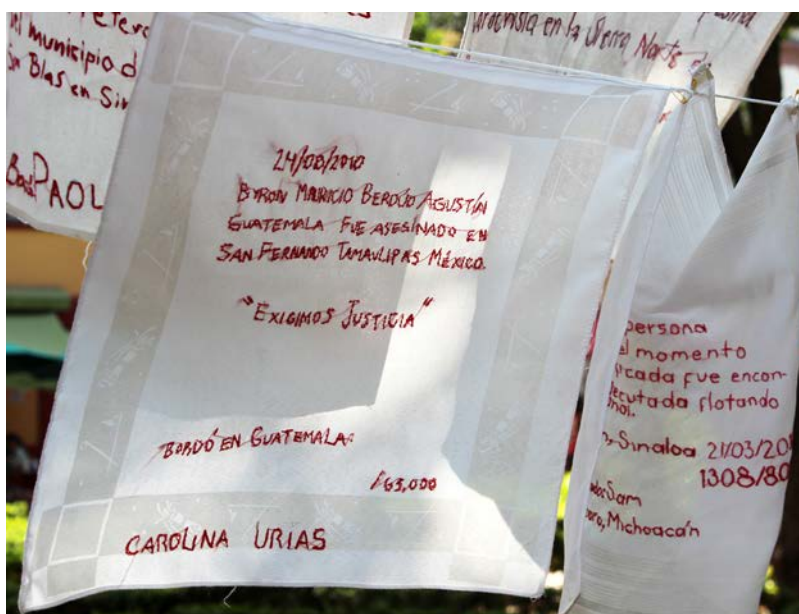 el municipio d
Blas en Sin
PAOL
en la Sierra Norte
24/08/2010
BYRON MAURICIO BERDUO AGUSTÍN
GUATEMALA FUE ASESINADO EN
SAN FERNANDO TAMAULIPAS MÉXICO.
"EXIGIMOS JUSTICIA"
BORDÓ EN GUATEMALA:
/63,000
CAROLINA URIAS
persona
el momento
ficada fue encon-
ecutada flotando
nal.
n, Sinaloa 21/03/20
1308/80
Sam
oro, Michoacán